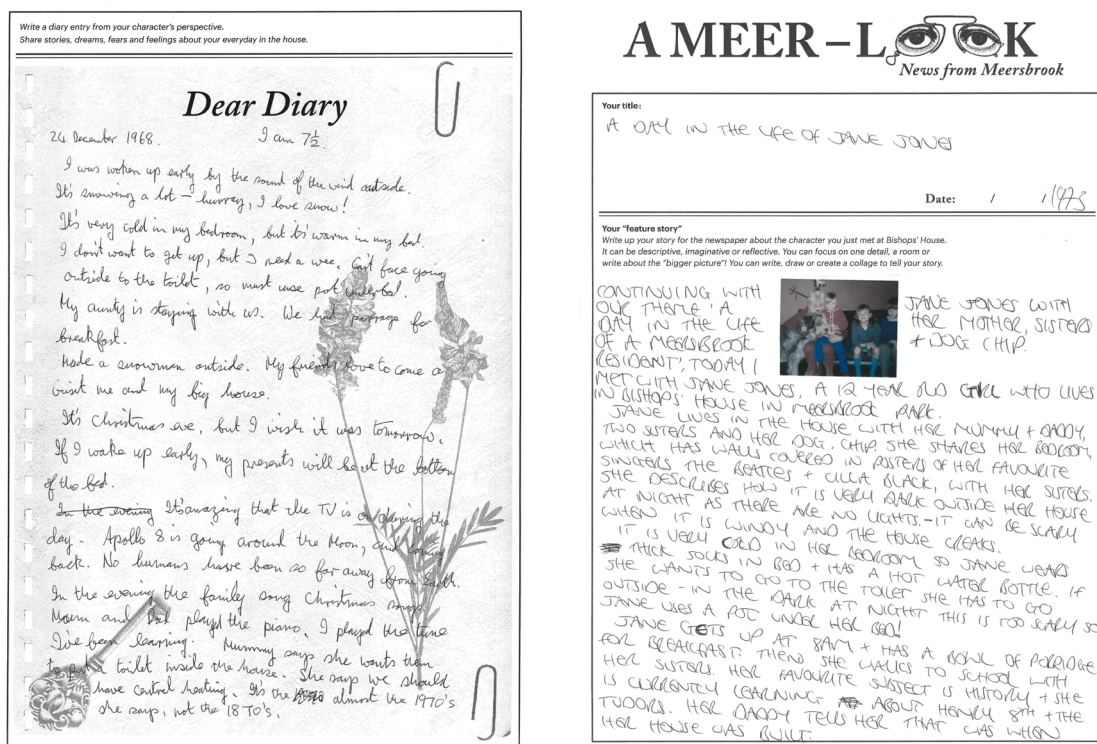 Write a diary entry from your character's perspective.
Share stories, dreams, fears and feelings about your everyday in the house.
Dear Diary
24 December 1968. I am 7½.
I was woken up early by the sound of the wind outside.
It's snowing a lot – hurray, I love snow!
It's very cold in my bedroom, but it's warm in my bed.
I don't want to get up, but I need a wee. Can't face going
outside to the toilet, so must use pot under bed.
My aunty is staying with us. We had porrage for
breakfast.
Made a snowman outside. My friends love to come a
visit me and my big house.
It's Christmas eve, but I wish it was tomorrow.
If I wake up early, my presents will be at the bottom
of the bed.
In the evening It's amazing that the TV is on during the
day. Apollo 8 is going around the Moon, and coming
back. No humans have been so far away from Earth.
In the evening the family sang Christmas songs.
Mum and Dad played the piano. I played the tune
I've been learning. Mummy says she wants them
to put a toilet inside the house. She says we should
have central heating. It's the almost the 1970's
she says, not the 1870's.
A MEER-LOOK
News from Meersbrook
Your title:
A DAY IN THE LIFE OF JANE JONES
Date: / /1973
Your "feature story"
Write up your story for the newspaper about the character you just met at Bishops' House.
It can be descriptive, imaginative or reflective. You can focus on one detail, a room or
write about the "bigger picture"! You can write, draw or create a collage to tell your story.
CONTINUING WITH
OUR THEME 'A
DAY IN THE LIFE
OF A MEERSBROOK
RESIDENT', TODAY I
JANE JONES WITH
HER MOTHER, SISTERS
+ DOG CHIP.
MET WITH JANE JONES, A 12 YEAR OLD GIRL WHO LIVES
IN BISHOPS' HOUSE IN MEERSBROOK PARK.
JANE LIVES IN THE HOUSE WITH HER MUMMY + DADDY,
TWO SISTERS AND HER DOG, CHIP. SHE SHARES HER BEDROOM,
WHICH HAS WALLS COVERED IN POSTERS OF HER FAVOURITE
SINGERS THE BEATLES + CILLA BLACK, WITH HER SISTERS.
SHE DESCRIBES HOW IT IS VERY DARK OUTSIDE HER HOUSE
AT NIGHT AS THERE ARE NO LIGHTS.-IT CAN BE SCARY
WHEN IT IS WINDY AND THE HOUSE CREAKS.
IT IS VERY COLD IN HER BEDROOM SO JANE WEARS
THICK SOCKS IN BED + HAS A HOT WATER BOTTLE. IF
SHE WANTS TO GO TO THE TOILET SHE HAS TO GO
OUTSIDE - IN THE DARK AT NIGHT THIS IS TOO SCARY SO
JANE USES A POT UNDER HER BED!
JANE GETS UP AT 8AM + HAS A BOWL OF PORRIDGE
FOR BREAKFAST. THEN SHE WALKS TO SCHOOL WITH
HER SISTERS. HER FAVOURITE SUBJECT IS HISTORY + SHE
IS CURRENTLY LEARNING ABOUT HENRY 8TH + THE
TUDORS. HER DADDY TELLS HER THAT WAS WHEN
HER HOUSE WAS BUILT.